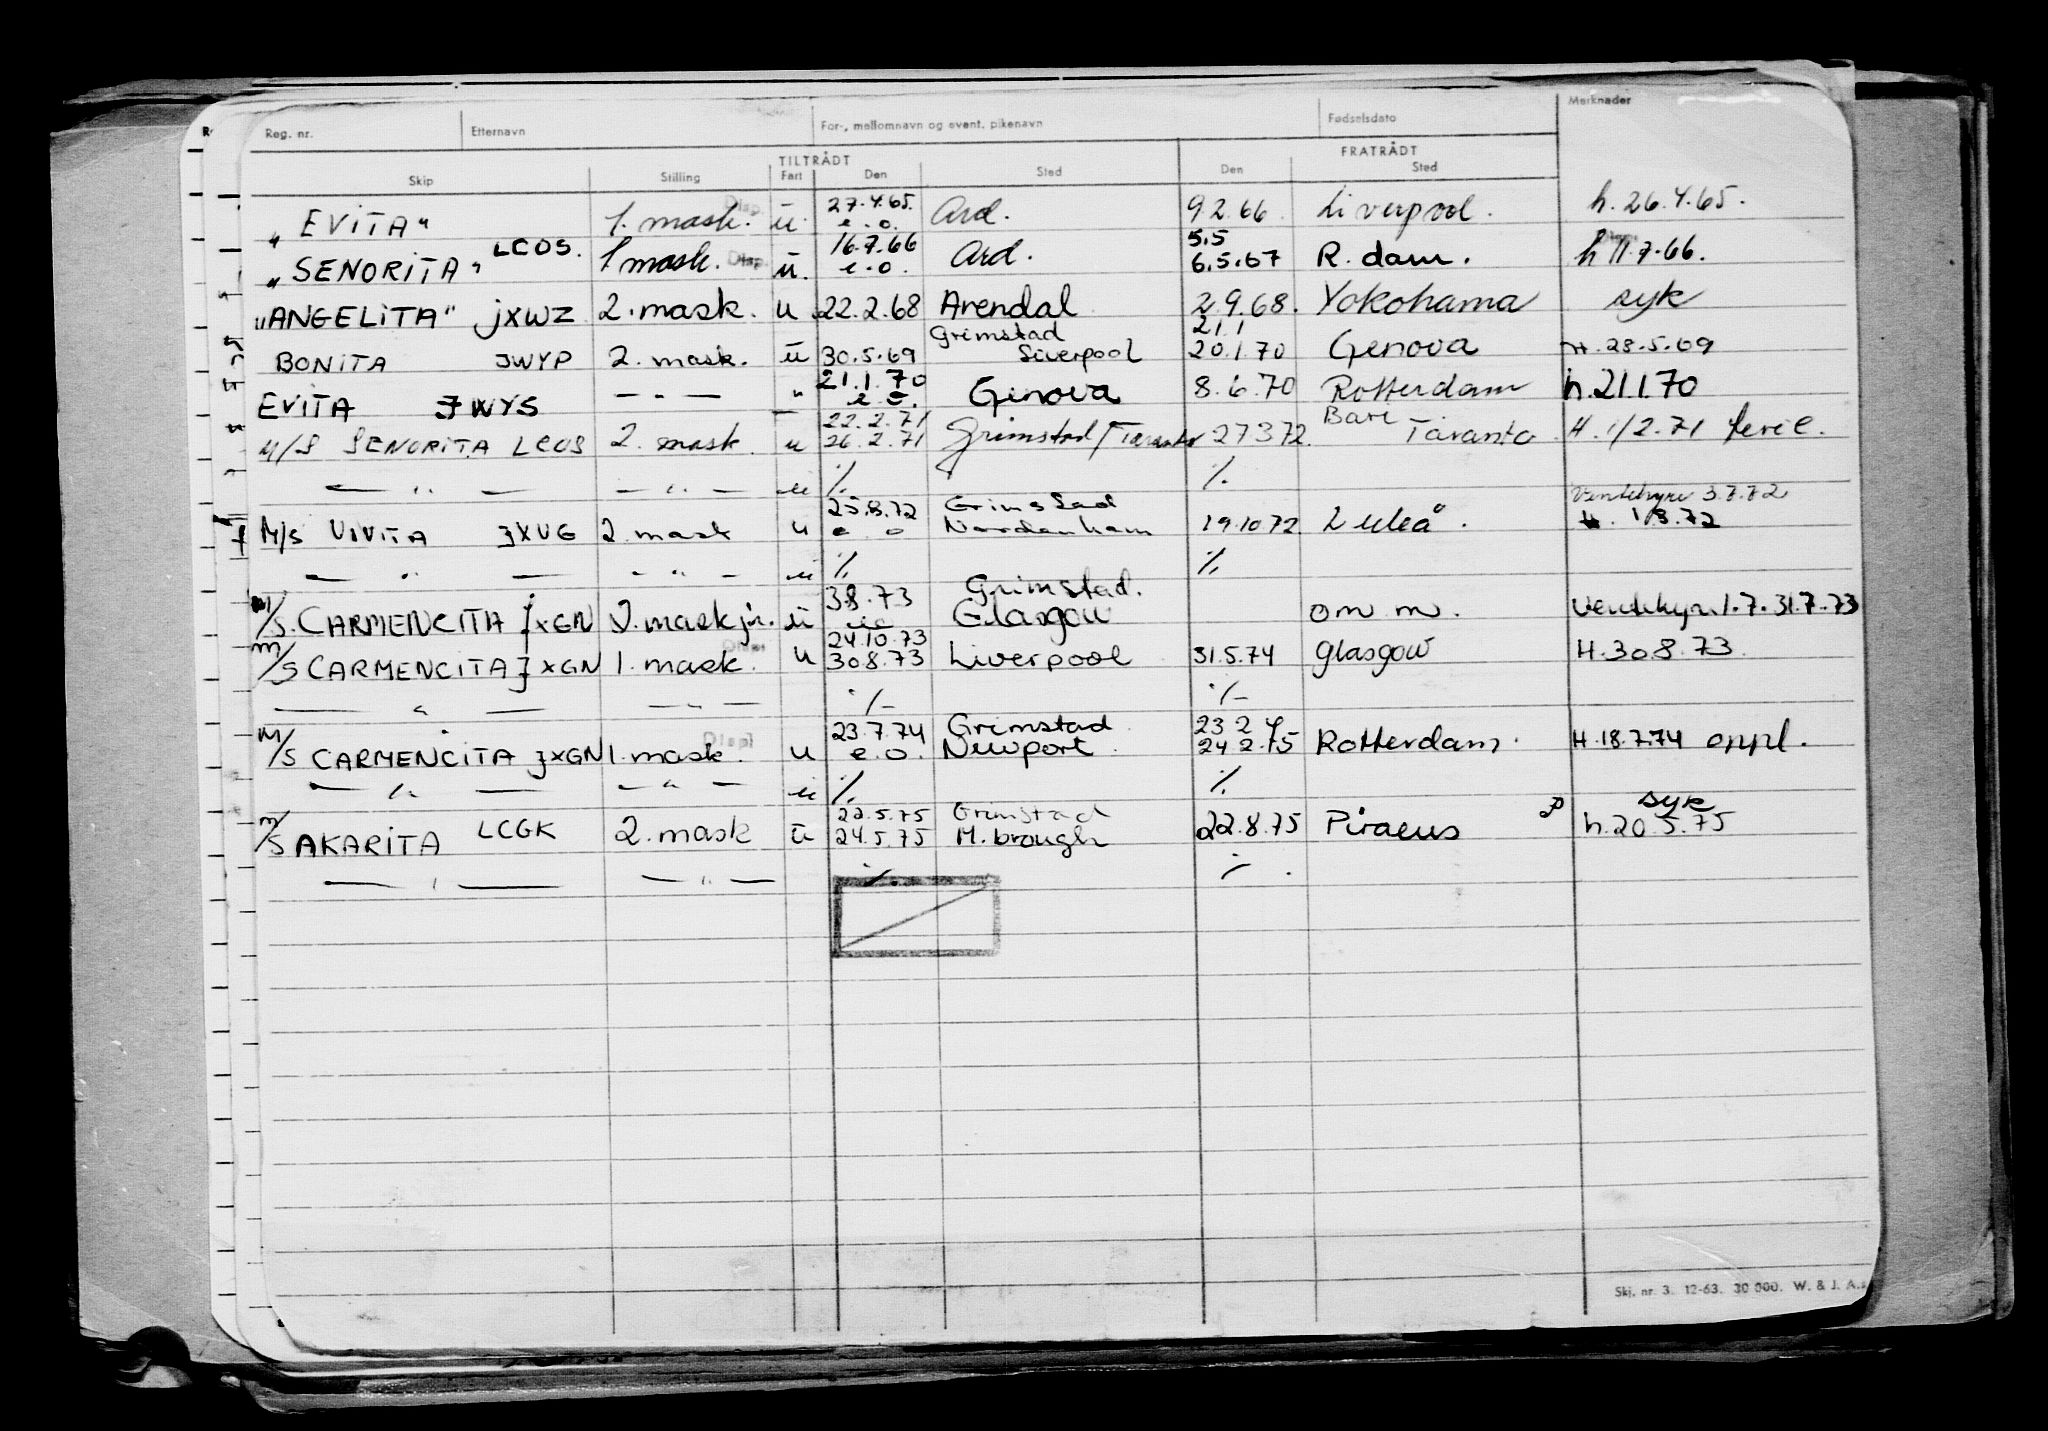 Reg. nr. Etternavn For-, mellomnavn og event. pikenavn Fødselsdato Merknader
TILTRÅDT FRATRÅDT
Skip Stilling Fart Den Sted Den Sted
27.4.65.
"EVITA" 1. mask. Disp. ü. e.o. Ard. 9.2.66 Liverpool. h. 26.4.65.
16.7.66 5.5
"SENORITA" LCOS. 1 mask. Disp. ü. e.o. Ard. 6.5.67 R.dam. h 11.7.66.
"ANGELITA" JXWZ 2. mask. u 22.2.68 Arendal 2.9.68. Yokohama syk
Grimstad 21.1
BONITA JWYP 2. mask. ü 30.5.69 Liverpool 20.1.70 Genova H. 28.5.69
21.1.70
EVITA JWYS — " — " e o. Genova 8.6.70 Rotterdam h.21.1.70
22.2.71 Bari
M/S SENORITA LCOS 2. mask u 26.2.71 Grimstad/Taranto 27.3.72. Taranto. H. 1/2.71 ferie.
— " — — " — u ./. ./.
25.8.72 Grimstad Ventehyre 3.7.72
M/S VIVITA JXUG 2. mask u e o Nordenham 19.10.72. Luleå. H. 1/3.72
— " — — " — u ./. ./.
3.8.73 Grimstad.
M/S. CARMENCITA JXGN 2. mask jr. ü eo Glasgow om m. Ventehyr. 1.7. 31.7.73
24.10.73
m/S CARMENCITA JXGN 1. mask. Disp. u 30.8.73 Liverpool 31.5.74 Glasgow H. 30.8.73.
— " — — " — ./. ./.
23.7.74 Grimstad 23 2
M/S CARMENCITA JXGN 1. mask. Displ u e.o. Newport 24.2.75 Rotterdam. H. 18.7.74 oppl.
— " — — " — u ./. ./.
22.5.75 Grimstad syk
m/S AKARITA LCGK 2. mask ü 24.5.75 M.brough 22.8.75 Piraeus h.20.5.75
— " — — " — ./. ./.
Skj. nr. 3. 12-63. 30 000. W. & J. A.s